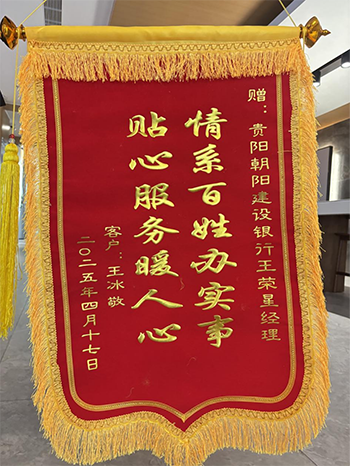 赠：贵阳朝阳建设银行王荣星经理
情系百姓办实事
贴心服务暖人心
客户：王冰敬
二〇二五年四月十七日